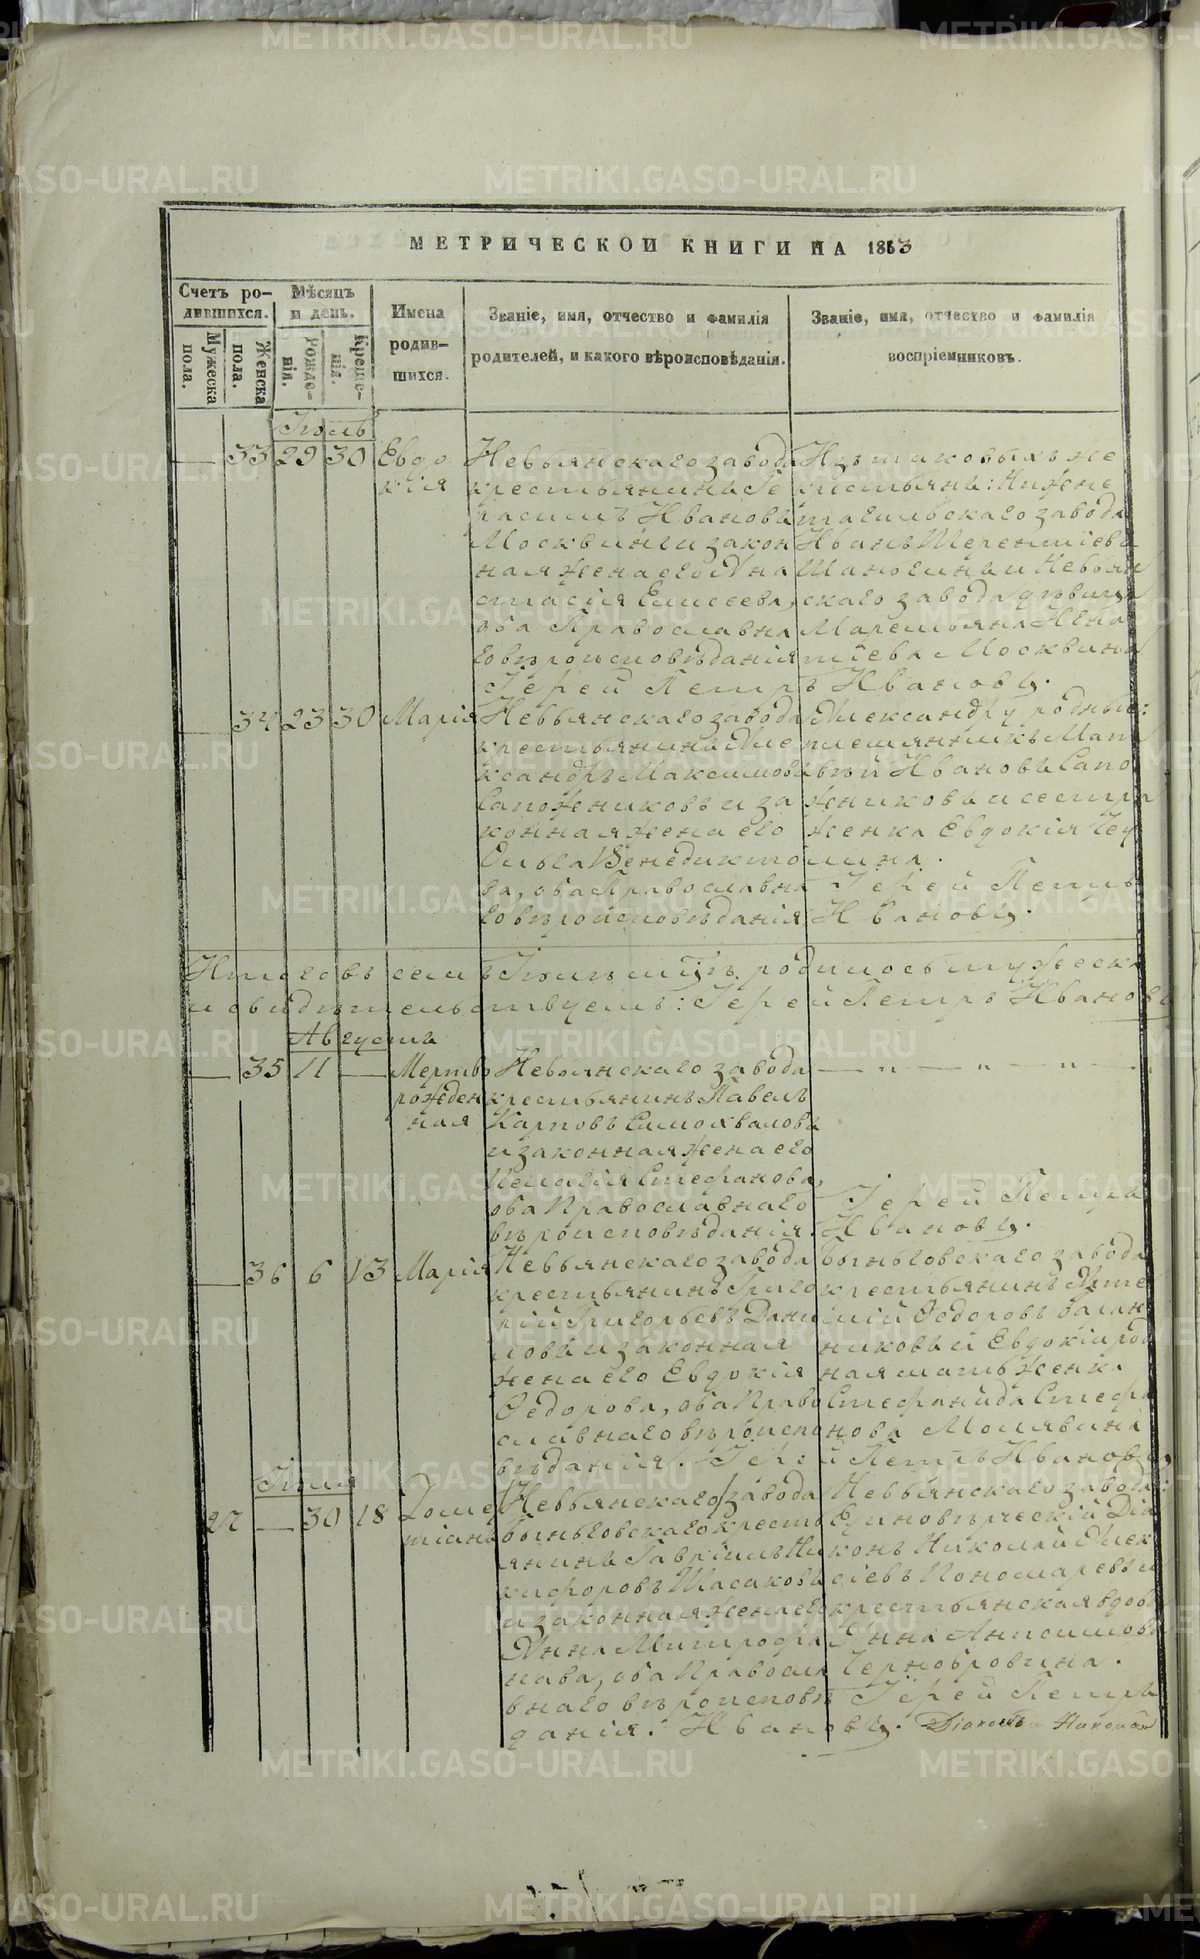 МЕТРИЧЕСКОЙ КНИГИ НА 1863
Счетъ ро-
дившихся.
Мужеска пола.
Женска пола.
Мѣсяцъ
и день.
Рожде-
нія.
Креще-
нія.
Имена
родив-
шихся.
Званіе, имя, отчество и фамилія
родителей, и какого вѣроисповѣданія.
Званіе, имя, отчество и фамилія
воспріемниковъ.
Іюль
— 33 29 30 Евдо
кія
Невьянскаго завода
крестьянинъ Ге
расимъ Ивановъ
Москвинъ и закон
ная жена его Ана
стасія Елисеева,
оба Православна
го вѣроисповѣданія
крестьянъ: Нижне
тагильскаго завода
Иванъ Терентіевъ
Шаньгинъ и Невьян
скаго завода дѣвица
Маремьяна
Москвина
Іерей Петръ Ивановъ.
— 34 23 30 Марія
Невьянскаго завода
крестьянинъ Але
ксандръ Максимовъ
Сапожниковъ и за
конная жена его
Ольга Венедикто
ва, оба Православна
го вѣроисповѣданія
Александру родные:
племянникъ Мат
вѣй Ивановъ Сапо
жниковъ и сестра
женка Евдокія
Іерей Петръ
Ивановъ.
Итого въ семъ Іюлѣ м-цѣ родилось мужеска
и свидѣтельствуемъ: Іерей Петръ Ивановъ
Августъ
— 35 11 — Мертво
рожден
ная
Невьянскаго завода
крестьянинъ Павелъ
Карповъ Самохваловъ
и законная жена его
Пелагія Стефанова,
оба Православнаго
вѣроисповѣданія.
— „ — „ — „ —
Іерей Петръ
Ивановъ.
— 36 6 13 Марія
Невьянскаго завода
крестьянинъ Григо
рій Григорьевъ Дани
ловъ и законная
жена его Евдокія
Ѳедорова, оба Право
славнаго вѣроиспо
вѣданія.
Быньговскаго завода
крестьянинъ Арте
мій Ѳедоровъ Балан
никовъ и Евдокіи род
ная мать женка
Стефанида Стефа
нова Молявина
Іерей Петръ Ивановъ,
Іюля
27 — 30 18 Доме
тіанъ
Невьянскаго завода
Быньговскаго кресть
янинъ Гавріилъ Ни
кифоровъ Шасаковъ
и законная жена его
Анна Митрофа
нова, оба Правосла
внаго вѣроисповѣ
данія.
Невьянскаго завода:
Единовѣрческій Діа
конъ Николай Алек
сіевъ Пономаревъ и
крестьянская вдова
Анна Анѳимова
Чернобровина.
Іерей Петръ
Ивановъ. Діаконъ Николай
METRIKI.GASO-URAL.RU